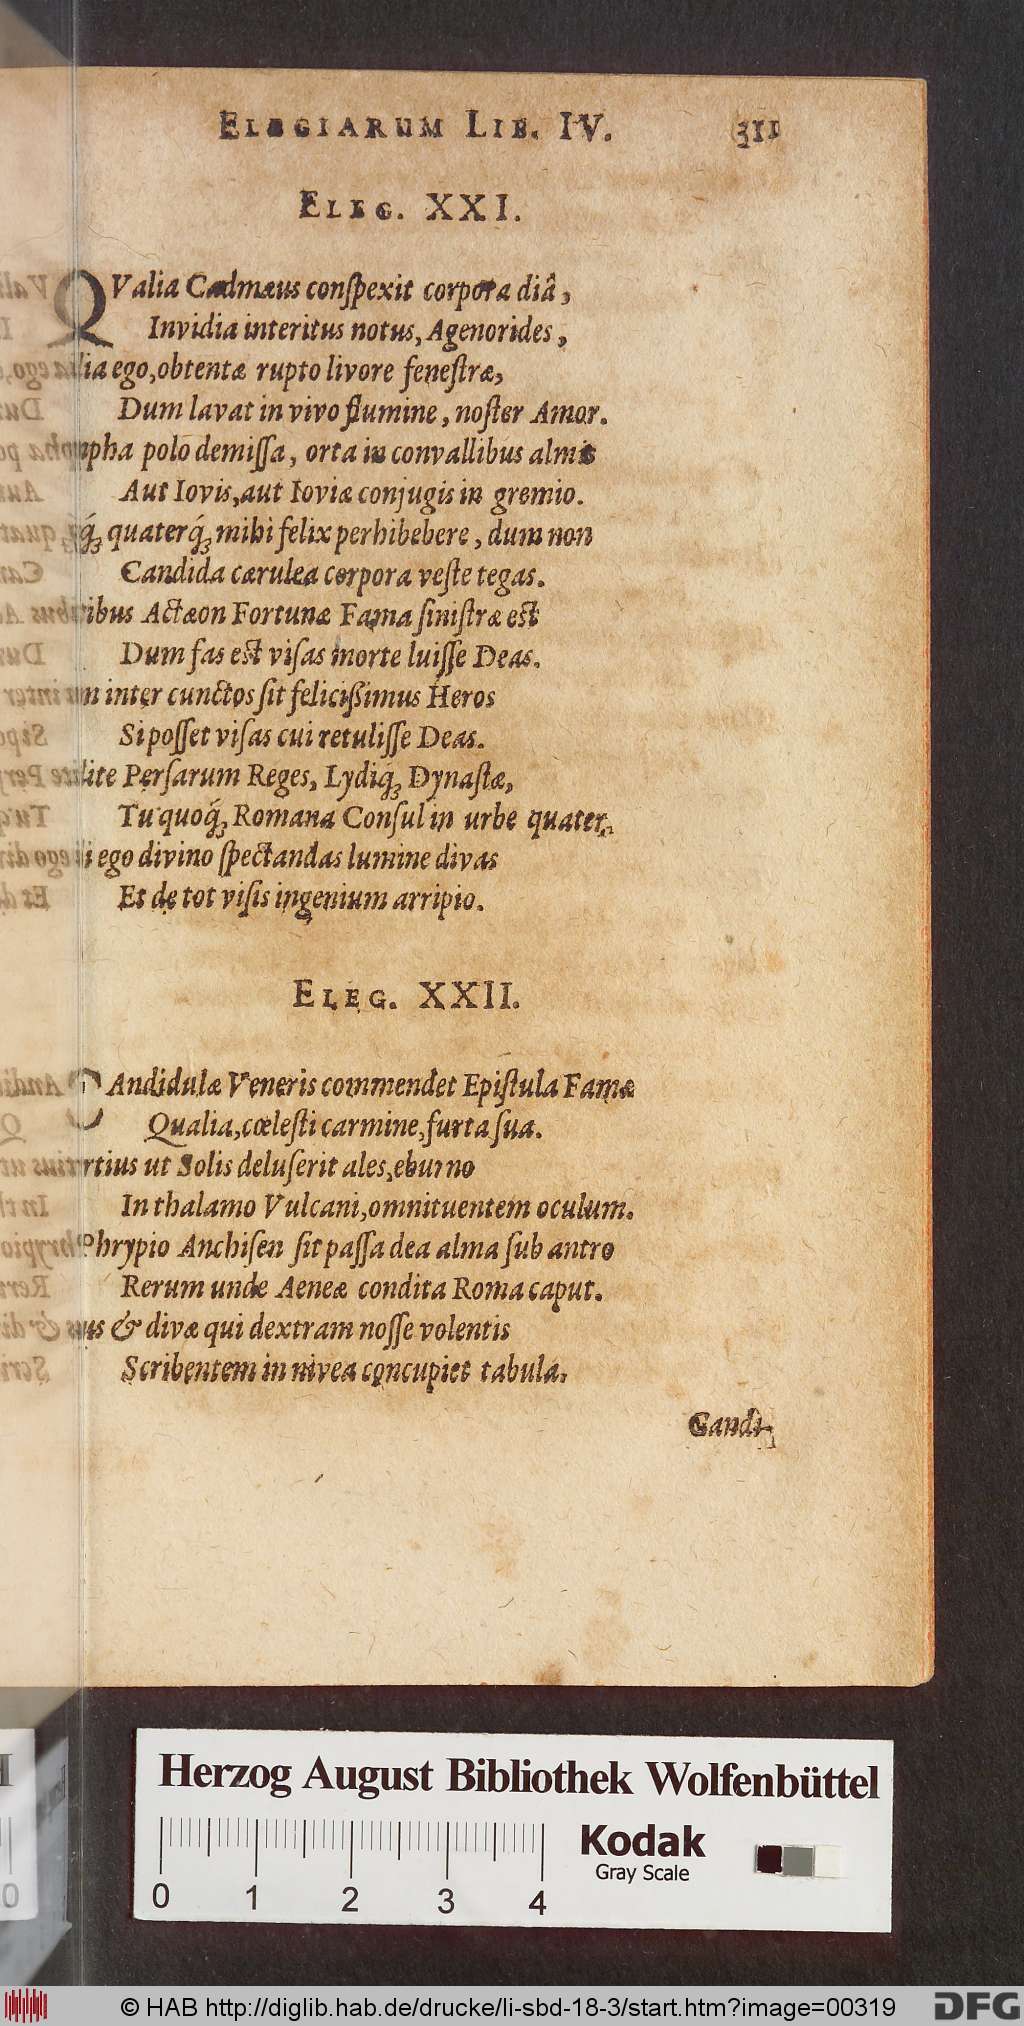 ELEGIARUM LIB. IV. 311
ELEG. XXI.
QValia Cadmæus conspexit corpora diâ,
Invidia interitus notus, Agenorides,
lia ego, obtentæ rupto livore fenestræ,
Dum lavat in vivo flumine, noster Amor.
mpha polo demissa, orta in convallibus almis
Aut Iovis, aut Ioviæ conjugis in gremio.
q́ꝫ quaterq́ꝫ mihi felix perhibebere, dum non
Candida cærulea corpora veste tegas.
ribus Actæon Fortunæ Fama sinistræ est
Dum fas est visas morte luisse Deas.
m inter cunctos sit felicißimus Heros
Si posset visas cui retulisse Deas.
dite Persarum Reges, Lydiq́ꝫ Dynastæ,
Tu quoq́ꝫ Romana Consul in urbe quater,
i ego divino spectandas lumine divas
Et de tot visis ingenium arripio.
ELEG. XXII.
CAndidulæ Veneris commendet Epistula Famæ
Qualia, cœlesti carmine, furta sua.
rtius ut Solis deluserit ales, eburno
In thalamo Vulcani, omnituentem oculum.
Phrypio Anchisen sit passa dea alma sub antro
Rerum unde Aeneæ condita Roma caput.
us & divæ qui dextram nosse volentis
Scribentem in nivea concupiet tabula.
Candi-
Herzog August Bibliothek Wolfenbüttel
Kodak
Gray Scale
0 1 2 3 4
© HAB http://diglib.hab.de/drucke/li-sbd-18-3/start.htm?image=00319
DFG